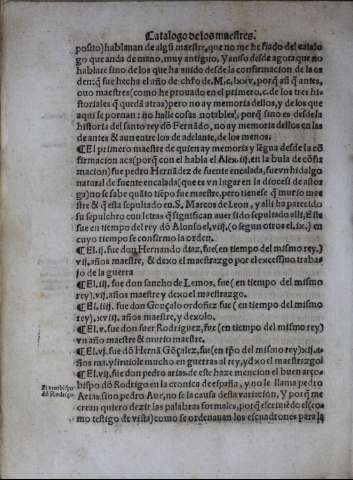 Catalogo de los maestres.
posito) hablman de algũ maestre, que no me he fiado del catalo
go que anda de mano, muy antiguo. Y anso desde agora que no
hablare sino de los que ha auido desde la confirmacion de la or
den: q̃ fue hecha el año de chr̃o de M.c.lxxv. porq̃ aũ q̃ antes,
ouo maestres (como he prouado en el primero, c. de los tres his-
toriales q̃ quedã atras) pero no ay memoria dellos, y de los que
aqui se pornan: no halle cosas notables, porq̃ sino es desde la
historia del santo rey dõ Fernãdo, no ay memoria dellos en las
de antes & aun entre los de adelante, de los menos.
¶El primero maestre de quien ay memoria y segua desde la cõ
firmacion aca (porq̃ con el habla el Alex. iij. en la bula de cõfir
macion) fue pedro Hernãdez de fuente encalada, fue vn hidalgo
natural de fuente encalada (que es vn lugar en la diocesi de astor
ga) no se sabe quãto tiẽpo fue maestre, pero tienese q̃ murio mae
stre & q̃ esta sepultado en. S. Marcos de Leon, y alli ha parecido
su sepulchro con letras q̃ significan auer sido sepultado alli, Este
fue en tiempo del rey dõ Alonso el. viij. (o segun otros el. ix.) en
cuyo tiempo se confirmo la orden.
¶El. ij. fue don Hernando diaz, fue (en tiempo del mismo rey.)
vij. años maestre, & dexo el maestrazgo por el excessiuo traba
jo de la guerra
¶El. iij. fue don sancho de Lemos, fue (en tiempo del mismo
rey.) vij. años maestre y dexo el maestrazgo.
¶El. iiij. fue don Gonçalo ordoñez fue (en tiempo del mismo
rey). xviij. años maestre, y dexolo.
¶El. v. fue don suer Rodriguez, fue (en tiempo del mismo rey)
vn año maestre & murio maestre.
¶El. vj. fue dõ Hernã Gõçalez, fue (en tp̃o del mismo rey) xij. a
ños mã. y siruiole mucho en guerras al rey, y dxo el maestrazgo
¶El. vij. fue don pedro arias. de este haze mencion el buen arço
bispo dõ Rodrigo en la cronica de españa, y no le llama pedro
Arias, sino pedro Aur, no se la causa desta variaciõ, Y porq̃ me
crean quiero dezir las palabras formales, porq̃ escriuiẽdo el (co
mo testigo de vista) como se ordenauan los escuadrones para la
El arçobispo
dõ Rodrigo.